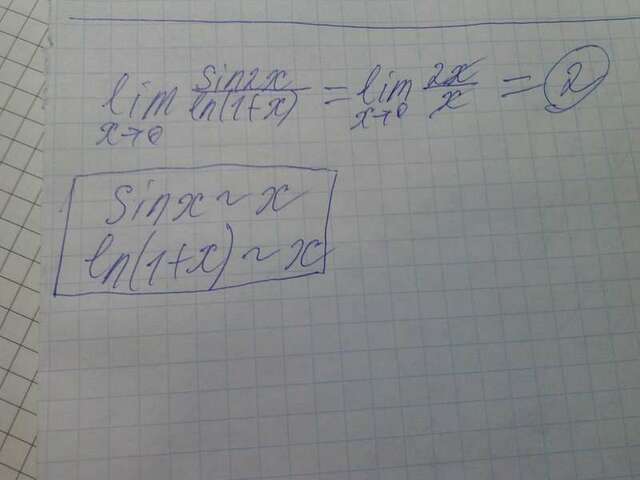 lim x→0 sin2x/ln(1+x) = lim x→0 2x/x = 2
sinx ~ x
ln(1+x) ~ x